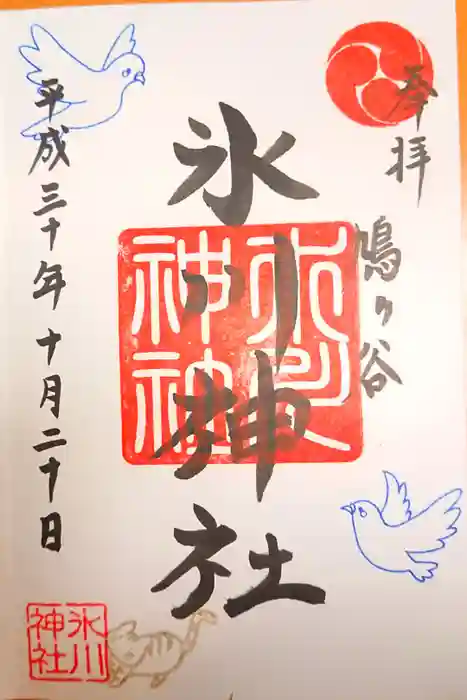 奉拝
鳩ヶ谷
氷川神社
氷川神社
平成三十年十月二十日
氷川神社